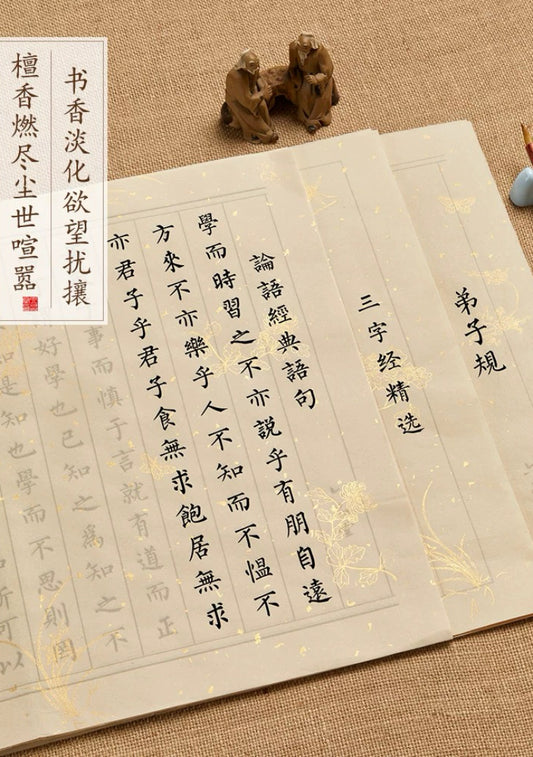 书香淡化欲望扰攘
檀香燃尽尘世喧嚣
弟子規
三字经精选
論語經典語句
學而時習之不亦説乎有朋自遠
方來不亦樂乎人不知而不愠不
亦君子乎君子食無求飽居無求
事而慎于言就有道而正
好學也已知之爲知之不
是知也學而不思則罔
可以